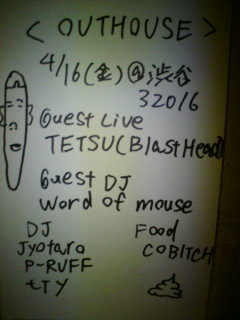 < OUTHOUSE >
4/16(金)@渋谷
32016
Guest Live
TETSU(BlastHead)
Guest DJ
Word of mouse
DJ
Jyotaro
P-RUFF
tTY
Food
COBITCH